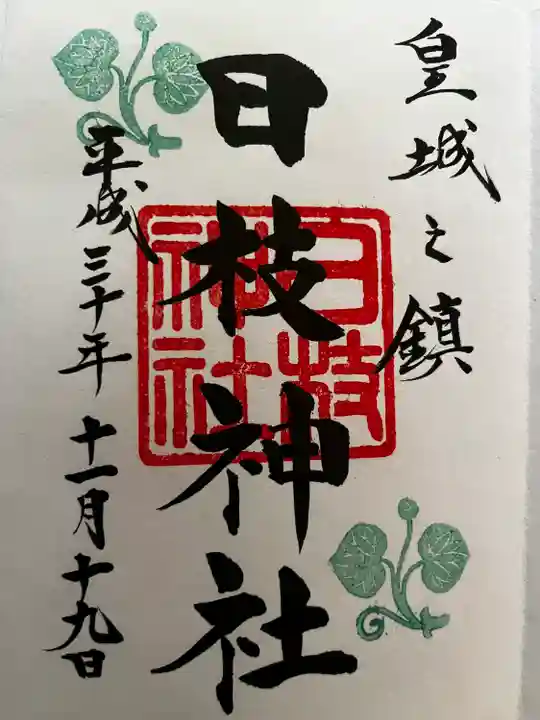 皇城之鎮
日枝神社
日枝
神社
平成三十年十一月十九日